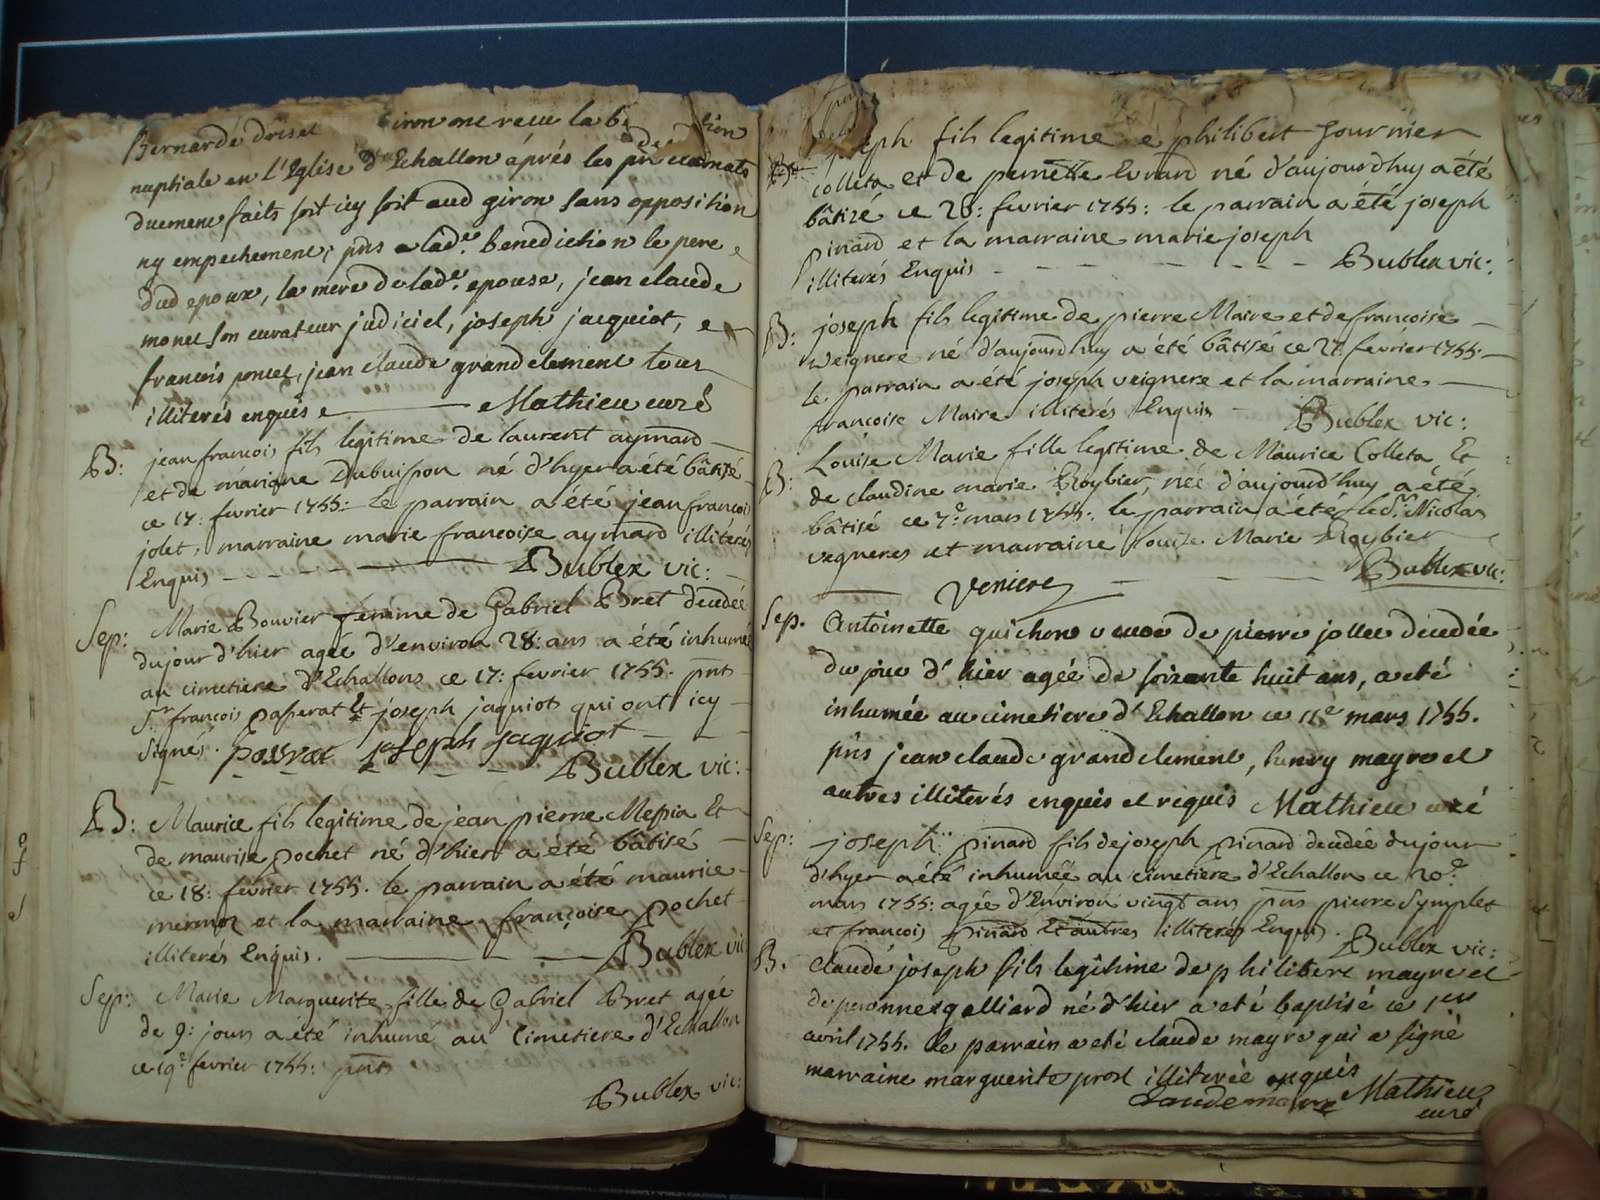 Bernarde driset giron ont recu la tion
nuptiale en l'Eglise d'Echallon après les
duement faits soit icy soit aud giron sans opposition
ny empechement; pns a lade. benediction le pere
dud epoux, la mere de lade. epouse, jean claude
monet son curateur judiciel, joseph jacquiot, e
francois poncet, jean claude grand clement tous
illiterés enquis Mathieu curé
B: jean francois fils legitime de laurent aymard
et de mariane Dubuisson né d'hyer a été bâtisé
ce 17: fevrier 1755: le parrain a été jean francois
jolet, marraine marie francoise aymard illiterés
Enquis Bublex vic:
Sep: Marie Bouvier femme de Gabriel Bret decedée
du jour d'hier agée d'environ 28: ans a été inhumé
au cimetiere d'Echallons ce 17: fevrier 1755. pnts
Sr françois passerat Et joseph jaquiot qui ont icy
Signés. passerat joseph jaquiot
Bublex vic:
B: Maurice fils legitime de jean pierre Messia Et
de maurise pochet né d'hier a été bâtisé
ce 18: fevrier 1755. le parrain a été maurice
mermet et la marraine françoise pochet
illiterés Enquis. Bublex vic
Sep: Marie Marguerite fille de Gabriel Bret agée
de 9: jours a été inhumé au Cimetiere d'Echallon
ce 19e fevrier 1755: pnts
Bublex vic:
joseph fils legitime de philibert fournier
colleta et de pernette Evrard né d'aujourdhuy a été
bâtizé ce 20: fevrier 1755: le parrain a été joseph
pinard et la marraine marie joseph
illiterés Enquis Bublex vic:
B: joseph fils legitime de pierre Maire et de françoise
Veignere né d'aujourdhuy a été bâtisé ce 21 fevrier 1755.
le parrain a été joseph veignere et la marraine
francoise Maire illiterés Enquis Bublex vic:
B: Louise Marie fille legitime de Maurice Colleta Et
de claudine marie Roybier, née d'aujourd'huy a été
bâtisé ce 7e mars 1755. le parrain a été le Sr Nicolas
vegneres et marraine Louise Marie Roybier
Bublex vic:
Veniere
Sep. Antoinette guichon veuve de pierre jollet decedée
du jour d'hier agée de soixante huit ans, a eté
inhumée au cimetiere d'Echallon ce 11e mars 1755.
pns jean claude grandclement, henry mayre et
autres illiterés enquis et requis Mathieu curé
Sep: joseph pinard fils de joseph pinard decedée du jour
d'hyer a été inhumée au cimetiere d'Echallon ce 20e
mars 1755: agée d'Environ vingt ans pns pierre Symplet
et francois pinard Et autres illiterés Enquis. Bublex vic:
B. claude joseph fils legitime de philibert mayre et
de peronne galliard né d'hier a eté baptisé ce 1er
avril 1755. le parrain a eté claude mayre qui a signé
marraine marguerite prost illiterée enquis
Claude maire Mathieu
curé